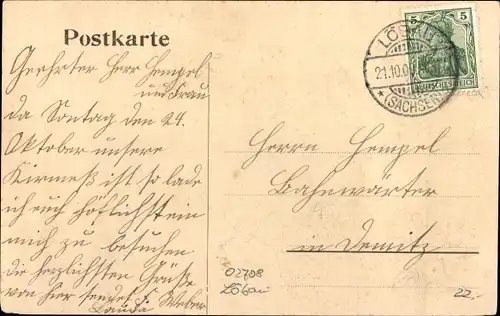 Postkarte
Geehrter Herr Hempel
und Frau
da Sontag den 24.
Oktober unsere
Kirmeß ist so lade
ich euch höflichst ein
mich zu besuchen
die herzlichsten Grüße
von hier sendet Weber
5 5
DEUTSCHES REICH
LÖBAU
21.10.09
*(SACHSEN)
Herrn Hempel
Bahnwärter
in Demitz
02708
Löbau
22.-